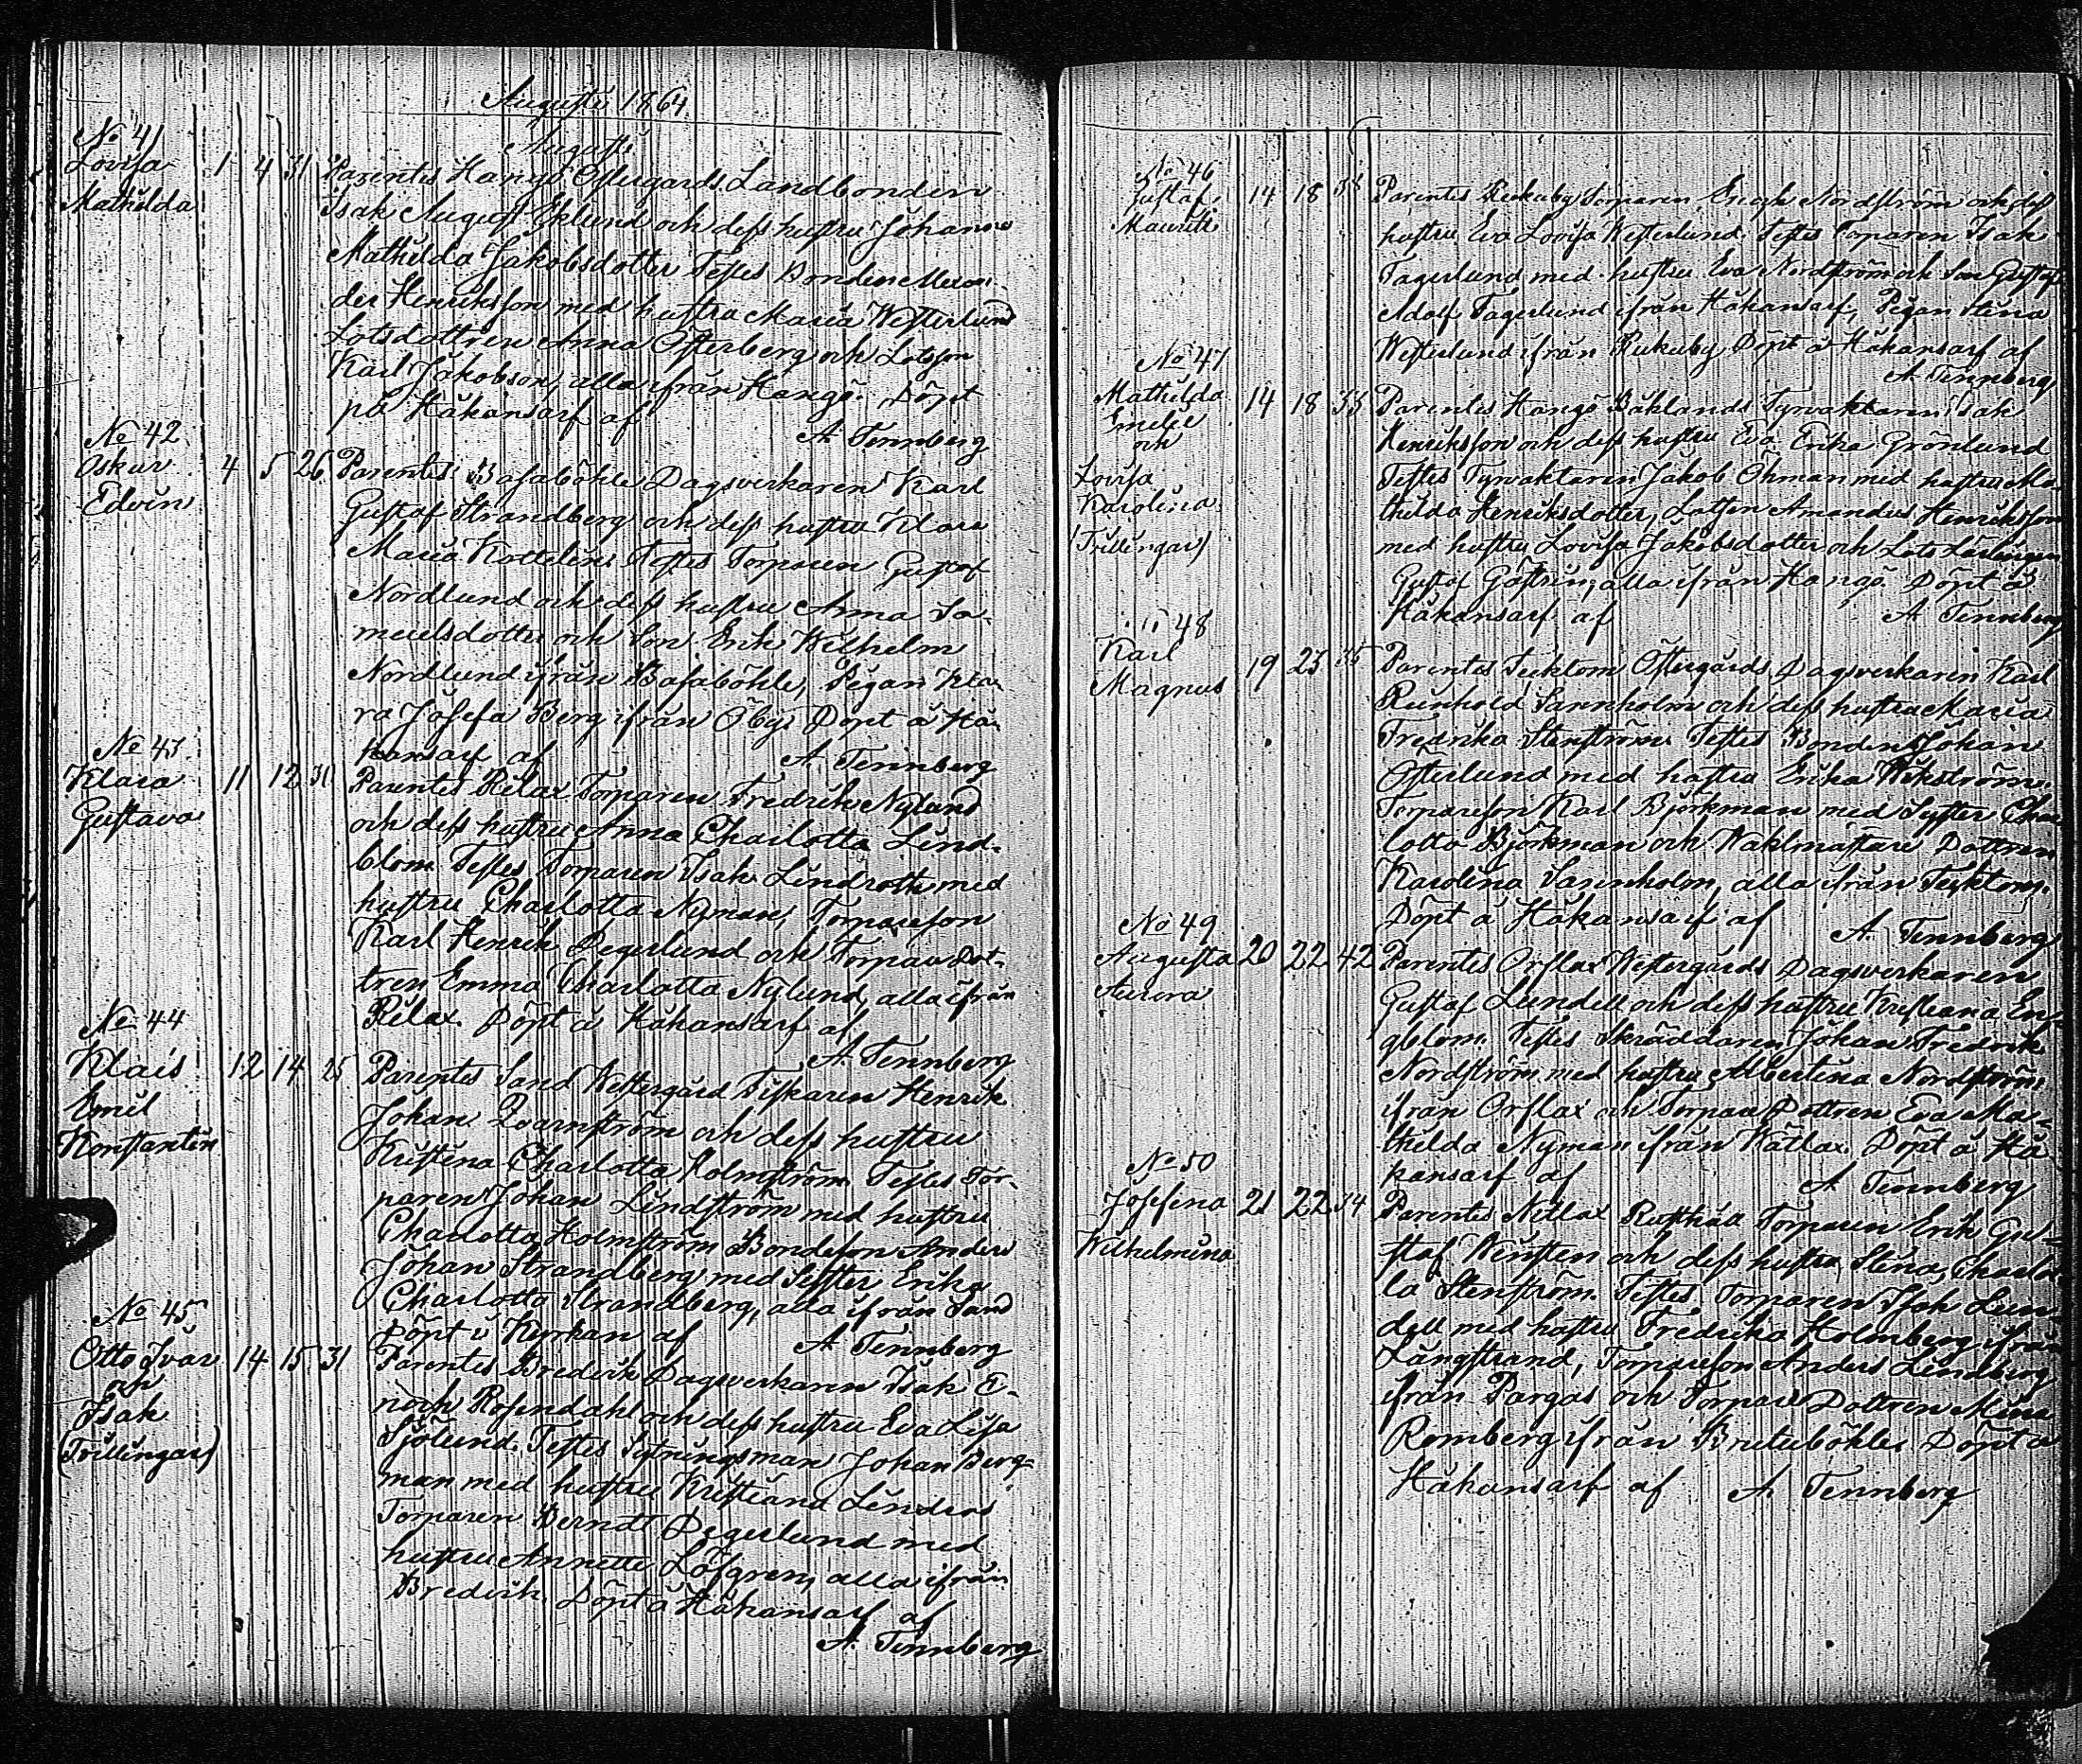 Augusti 1864
Augusti
No 41
Lovisa
Mathilda
1 4 31 Parentes Hangö Östergårds Landbonden
Isak August Eklund och dess hustru Johanna
Mathilda Jakobsdotter Testes Bonden Alexan-
der Henriksson med hustru Maria Westerlund
Lotsdottren Anna Österberg och Lotsson
Karl Jakobson, alla ifrån Hangö. Döpt
på Håkansarf af
A. Tennberg
No 42
Oskar
Edvin
4 5 26 Parentes Basaböhle Dagsverkaren Karl
Gustaf Strandberg och dess hustru Klara
Maria Kottelin. Testes Torparen Gustaf
Nordlund och dess hustru Anna Sa-
muelsdotter och Son Erik Wilhelm
Nordlund ifrån Basaböhle, Pigan Kla-
ra Josefa Berg ifrån Öby. Döpt å Hå-
kansarf af A. Tennberg
No 43
Klara
Gustava
11 12 31 Parentes Rilax Torparen Fredrik Nylund
och dess hustru Anna Charlotta Lind-
blom Testes Torparen Isak Lindroth med
hustru Charlotta Nyman, Torpareson
Karl Henrik Degerlund och Torpare Dot-
tren Emma Charlotta Nylund, alla ifrån
Rilax. Döpt å Håkansarf af
A. Tennberg
No 44
Klais
Emil
Konstantin
12 14 25 Parentes Sand Westergård Fiskaren Henrik
Johan Qvarnström och dess hustru
Kristina Charlotta Holmström Testes Tor-
paren Johan Lindström med hustru
Charlotta Holmström Bondeson Anders
Johan Strandberg med Syster Erika
Charlotta Strandberg, alla ifrån Sand
Döpt i Kyrkan af A. Tennberg
No 45
Otto Ivar
och
Isak
(Tvillingar)
14 15 31 Parentes Bredvik Dagsverkaren Isak E-
noch Rosendahl och dess hustru Eva Lisa
Sjölund. Testes Sytningsman Johan Berg-
man med hustru Kristiana Linders
Torparen Berndt Degerlund med
hustru Annette Löfgren, alla ifrån
Bredvik. Döpt å Håkansarf af
A. Tennberg
No 46
Gustaf
Mauritz
14 18 Parentes Rukuby Torparen Enoch Nordström och dess
hustru Eva Lovisa Westerlund Testes Torparen Isak
Fagerlund med hustru Eva Nordström och Son Gustaf
Adolf Fagerlund ifrån Håkansarf, Pigan Stina
Westerlund ifrån Rukuby Döpt å Håkansarf af
A. Tennberg
No 47
Mathilda
Emelie
och
Lovisa
Karolina
(Tvillingar)
14 18 33 Parentes Hangö Båklands Fyrvaktaren Isak
Henriksson och dess hustru Eva Erika Grönlund
Testes Fyrvaktaren Jakob Öhman med hustru Ma-
thilda Henriksdotter, Lotsen Amandus Henriksson
med hustru Lovisa Jakobsdotter och Lots Lärlingen
Gustaf Göstrin, alla ifrån Hangö. Döpt å
Håkansarf af A Tennberg
48
Karl
Magnus
19 23 35 Parentes Tecktom Östergårds Dagsverkaren Karl
Reinhold Sannholm och dess hustru Maria
Fredrika Stenström. Testes Bonden Johan
Österlund med hustru Erika Wikström.
Torpareson Karl Björkman med Syster Char-
lotta Björkman och Waktmästare Dottren
Karolina Sannholm, alla ifrån Tecktom.
Döpt å Håkansarf af A. Tennberg
No 49
Augusta
Aurora
20 22 42 Parentes Orslax Westergårds Dagsverkaren
Gustaf Lundell och dess hustru Kristiana En-
gblom. Testes Skräddaren Johan Fredrik
Nordström med hustru Albertina Nordström
ifrån Orslax och Torpare Dottren Eva Ma-
thilda Nyman ifrån Wätlax. Döpt å Hå
kansarf af A Tennberg
No 50
Josefina
Wilhelmina
21 22 34 Parentes Nitlax Rusthåll Torparen Erik Gu-
staf Winsten och dess hustru Stina Charlot-
ta Stenström. Testes Torparen Isak Lun-
dell med hustru Fredrika Holmberg ifrån
Långstrand, Torpareson Anders Lindberg
ifrån Pargas och Torpare Dottren Mina
Romberg ifrån Bruteböhle Döpt å
Håkansarf af A Tennberg